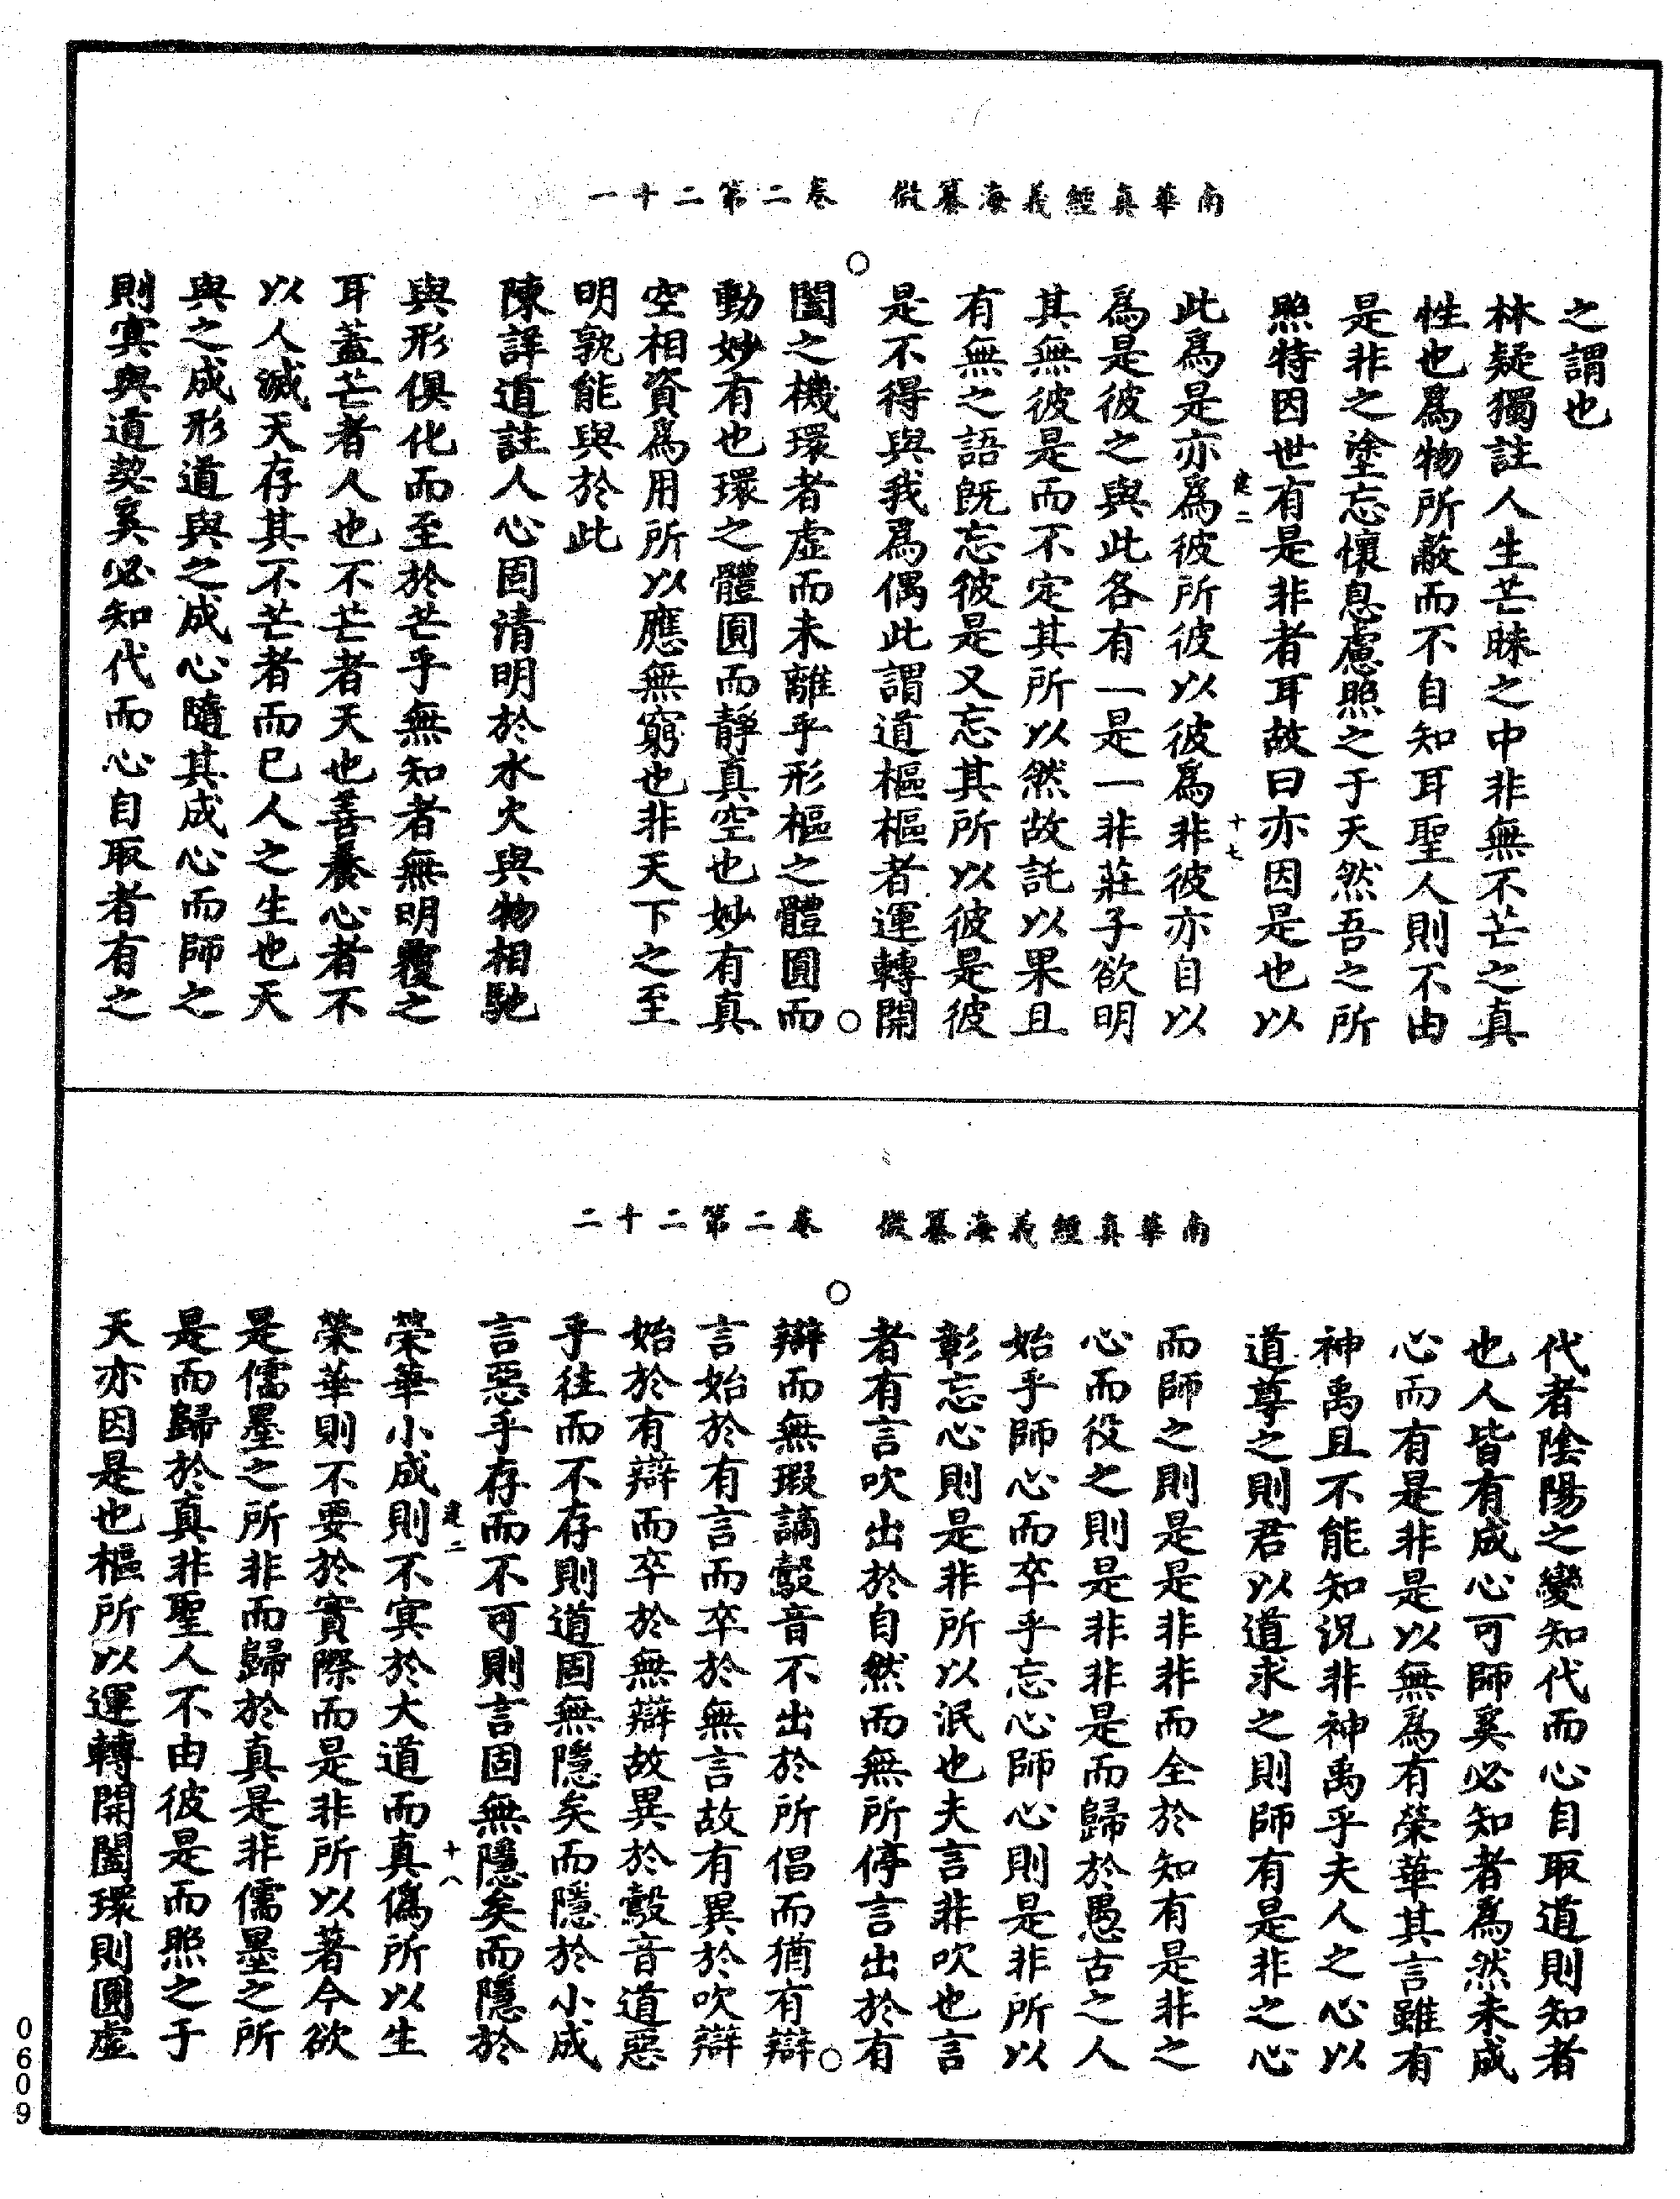 南華真經義海纂微　卷二第二十一
之謂也
林疑獨註人生芒昧之中非無不芒之真
性也爲物所蔽而不自知耳聖人則不由
是非之塗忘懷息慮照之于天然吾之所
照特因世有是非者耳故曰亦因是也以
建二　十七
此爲是亦爲彼所彼以彼爲非彼亦自以
爲是彼之與此各有一是一非莊子欲明
其無彼是而不定其所以然故託以果且
有無之語旣忘彼是又忘其所以彼是彼
是不得與我爲偶此謂道樞樞者運轉開
闔之機環者虛而未離乎形樞之體圓而
動妙有也環之體圓而靜真空也妙有真
空相資爲用所以應無窮也非天下之至
明孰能與於此
陳詳道註人心固清明於水火與物相馳
與形俱化而至於芒乎無知者無明覆之
耳蓋芒者人也不芒者天也善養心者不
以人滅天存其不芒者而已人之生也天
與之成形道與之成心隨其成心而師之
則㝠與道契奚必知代而心自取者有之
南華真經義海纂微　卷二第二十二
代者陰陽之變知代而心自取道則知者
也人皆有成心可師奚必知者爲然未成
心而有是非是以無爲有榮華其言雖有
神禹且不能知況非神禹乎夫人之心以
道尊之則君以道求之則師有是非之心
而師之則是是非非而全於知有是非之
心而役之則是非非是而歸於愚古之人
始乎師心而卒乎忘心師心則是非所以
彰忘心則是非所以泯也夫言非吹也言
者有言吹出於自然而無所停言出於有
辯而無瑕謫鷇音不出於所倡而猶有辯
言始於有言而卒於無言故有異於吹辯
始於有辯而卒於無辯故異於鷇音道惡
乎往而不存則道固無隱矣而隱於小成
言惡乎存而不可則言固無隱矣而隱於
建二　十八
榮華小成則不㝠於大道而真僞所以生
榮華則不要於實際而是非所以著今欲
是儒墨之所非而歸於真是非儒墨之所
是而歸於真非聖人不由彼是而照之于
天亦因是也樞所以運轉開闔環則圓虛
0609